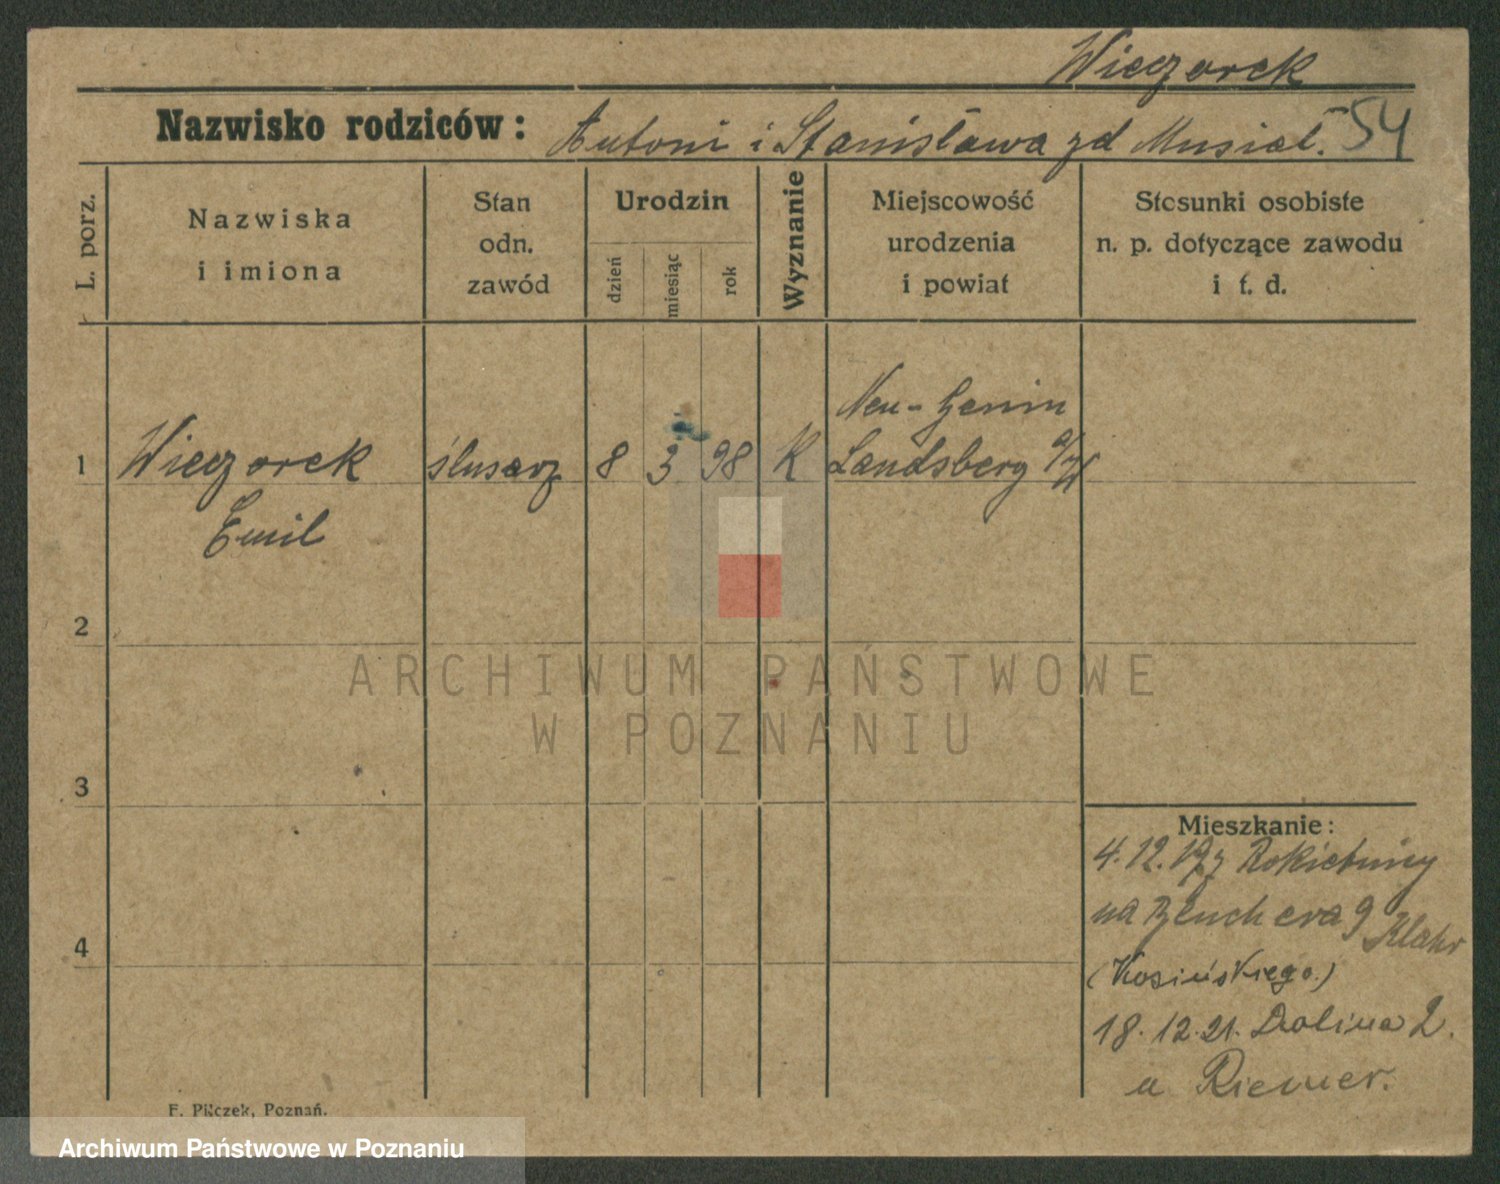 Wieczorek
Nazwisko rodziców: Antoni i Stanisława zd Musiał. 54
L. porz.
Nazwiska
i imiona
Stan
odn.
zawód
Urodzin
dzień
miesiąc
rok
Wyznanie
Miejscowość
urodzenia
i powiat
Stosunki osobiste
n. p. dotyczące zawodu
i t. d.
1
Wieczorek
Emil
ślusarz
8
3
98
K
Neu-Genin
Landsberg a/W
2
3
4
Mieszkanie:
4.12. z Rokietnicy
na Bluchera 9
(Kosińskiego)
18.12.21. Dolina 2.
u Riemer.
F. Pilczek, Poznań.
ARCHIWUM PAŃSTWOWE
W POZNANIU
Archiwum Państwowe w Poznaniu